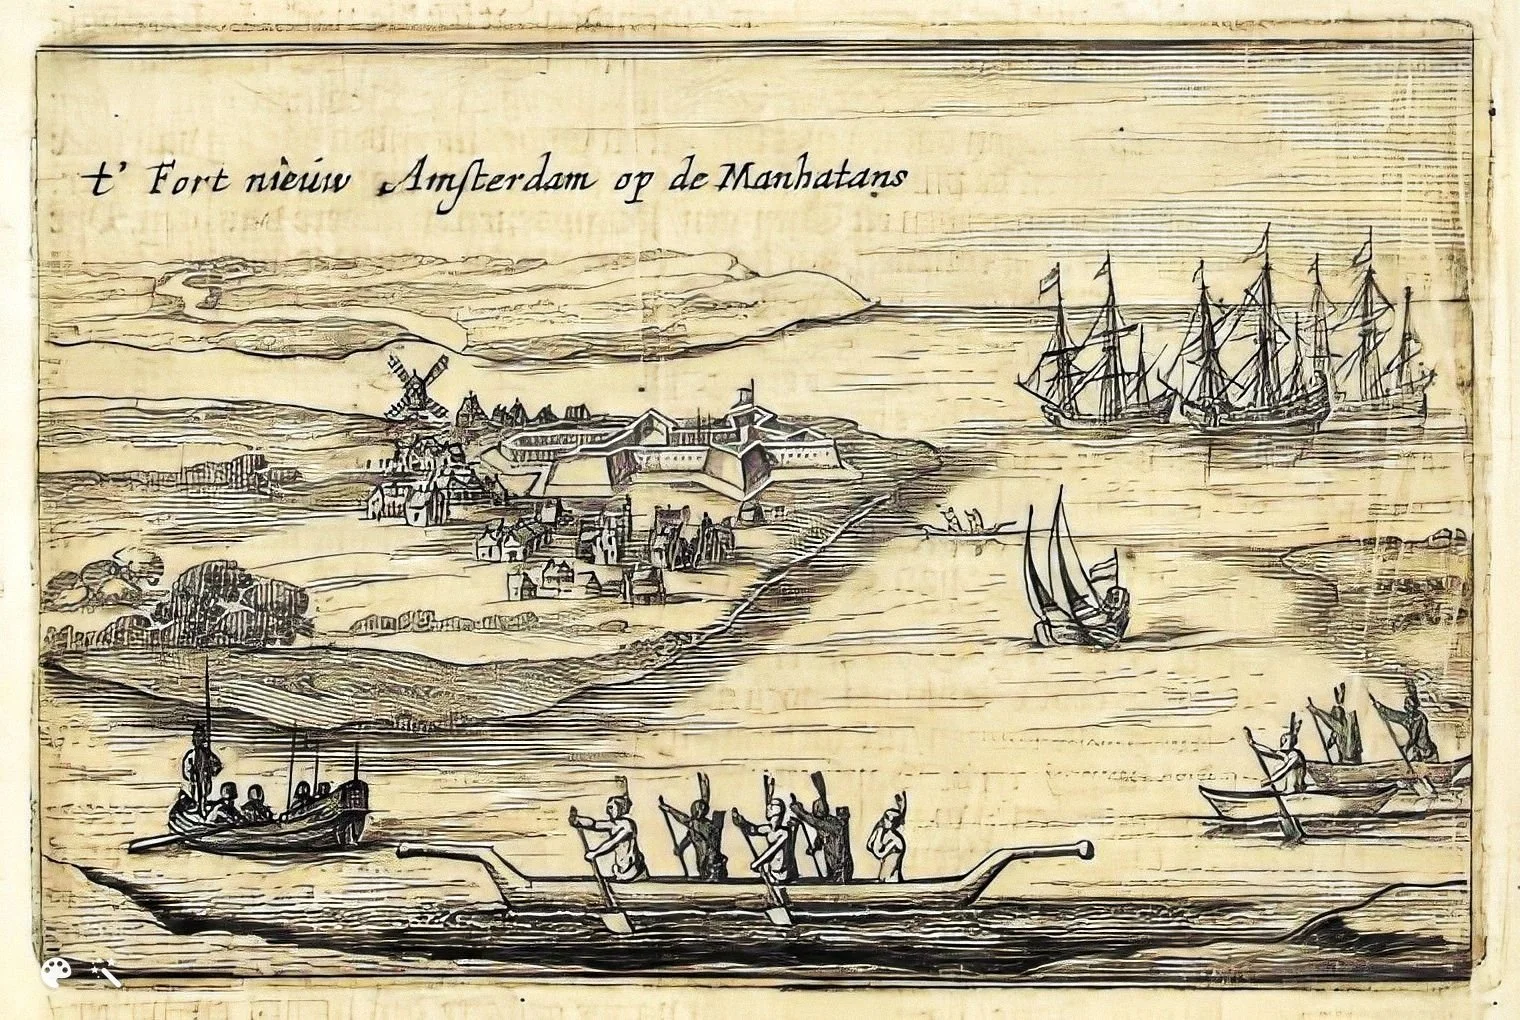 t' Fort nieuw Amſterdam op de Manhatans